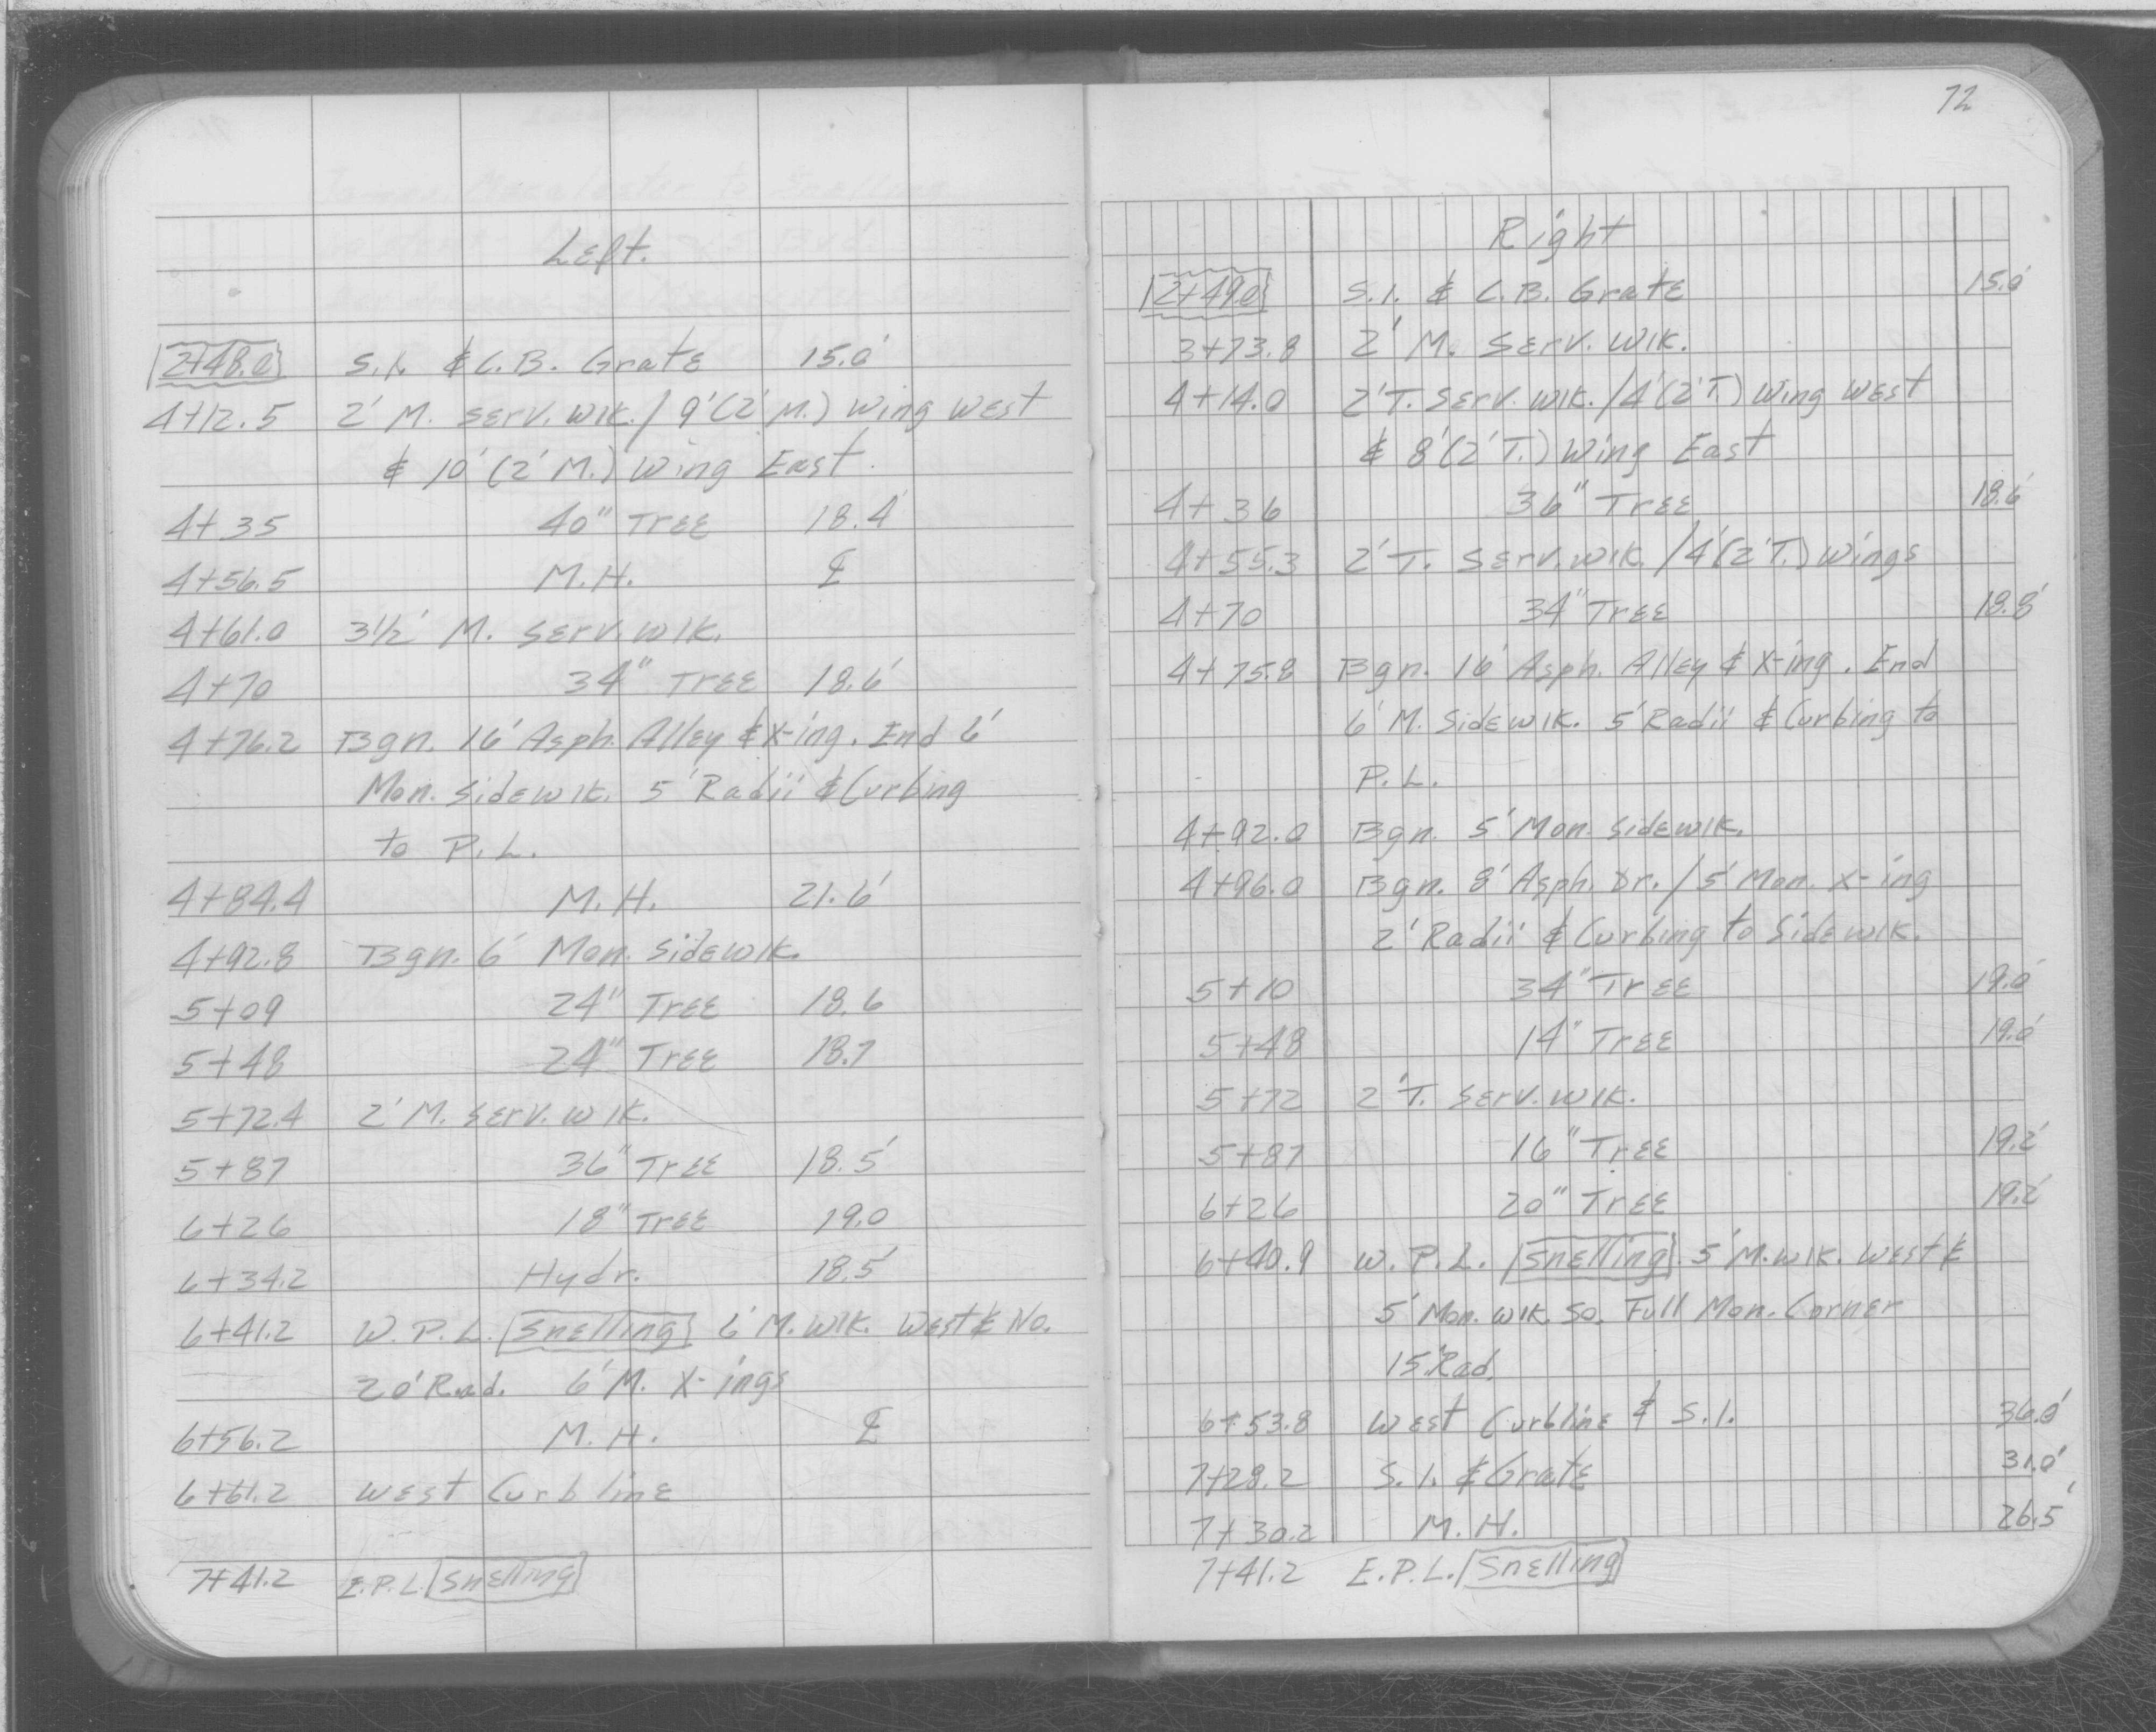 Left.
2+48.0 S.I. & C.B. Grate 15.0'
4+12.5 2' M. Serv. Wlk. / 9' (2' M.) Wing West
& 10' (2' M.) Wing East.
4+35 40" Tree 18.4'
4+56.5 M.H. ℄
4+61.0 3½' M. Serv. Wlk.
4+70 34" Tree 18.6'
4+76.2 Bgn. 16' Asph. Alley & X-ing. End 6'
Mon. Sidewlk. 5' Radii & Curbing
to P.L.
4+84.4 M.H. 21.6'
4+92.8 Bgn. 6' Mon. Sidewlk.
5+09 24" Tree 18.6
5+48 24" Tree 18.7
5+72.4 2' M. Serv. Wlk.
5+87 36" Tree 18.5'
6+26 18" Tree 19.0
6+34.2 Hydr. 18.5'
6+41.2 W.P.L. Snelling 6' M. Wlk. West & No.
20' Rad. 6' M. X-ings
6+56.2 M.H. ℄
6+61.2 West Curb line
7+41.2 E.P.L. Snelling
72
Right
2+49.0 S.I. & C.B. Grate 15.0'
3+73.8 2' M. Serv. Wlk.
4+14.0 2' T. Serv. Wlk. / 4' (2' T.) Wing West
& 8' (2' T.) Wing East
4+36 36" Tree 18.6'
4+55.3 2' T. Serv. Wlk. / 4' (2' T.) Wings
4+70 34" Tree 18.8'
4+75.8 Bgn. 16' Asph. Alley & X-ing. End
6' M. Sidewlk. 5' Radii & Curbing to
P.L.
4+92.0 Bgn. 5' Mon. Sidewlk.
4+96.0 Bgn. 8' Asph. Dr. / 5' Mon. X-ing
2' Radii & Curbing to Sidewlk.
5+10 34" Tree 19.0'
5+48 14" Tree 19.0'
5+72 2' T. Serv. Wlk.
5+87 16" Tree 19.2'
6+26 20" Tree 19.2'
6+40.9 W.P.L. Snelling 5' M. Wlk. West &
5' Mon. Wlk. So. Full Mon. Corner
15' Rad.
6+53.8 West Curbline & S.I. 36.0'
7+28.2 S.I. & Grate 31.0'
7+30.2 M.H. 26.5'
7+41.2 E.P.L. Snelling